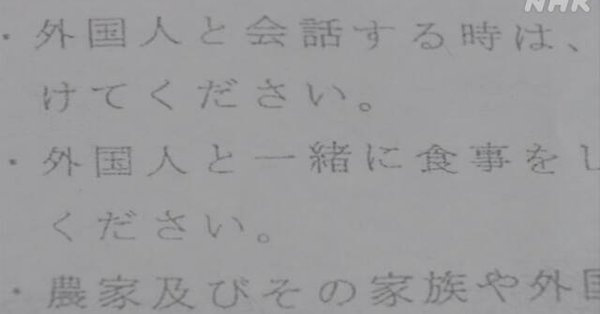 NHK
・外国人と会話する時は、
けてください。
・外国人と一緒に食事をし
ください。
・農家及びその家族や外国